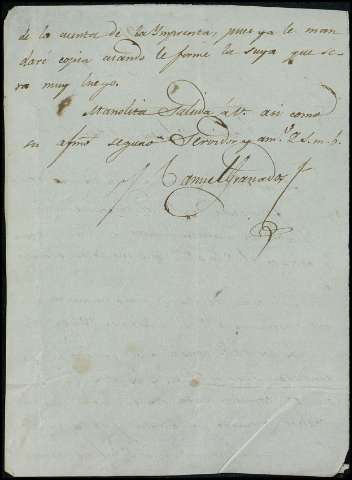 de la cuenta de la Ymprenta, pues ya le man
daré copia cuando le forme la suya que se-
ra muy luego.
Manolita Saluda á V. asi como
su afmo seguro Servidor y am.º Q. S. m. b.
Manuel Granados